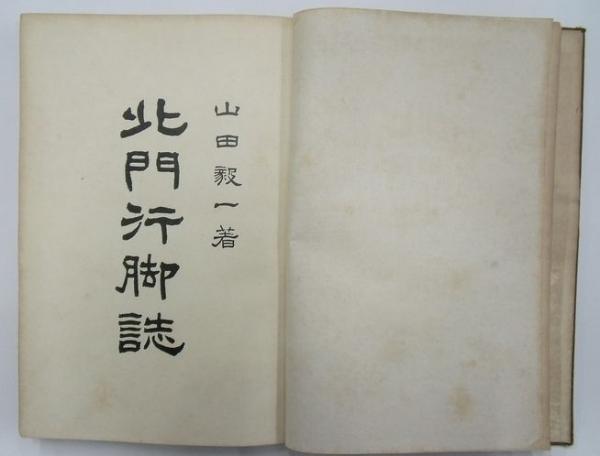 山田毅一著
北門行脚誌